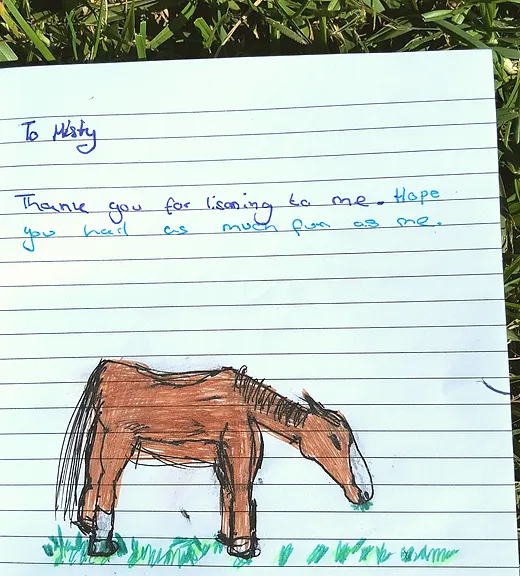 To Misty
Thank you for lisoning to me. Hope
you had as much fun as me.